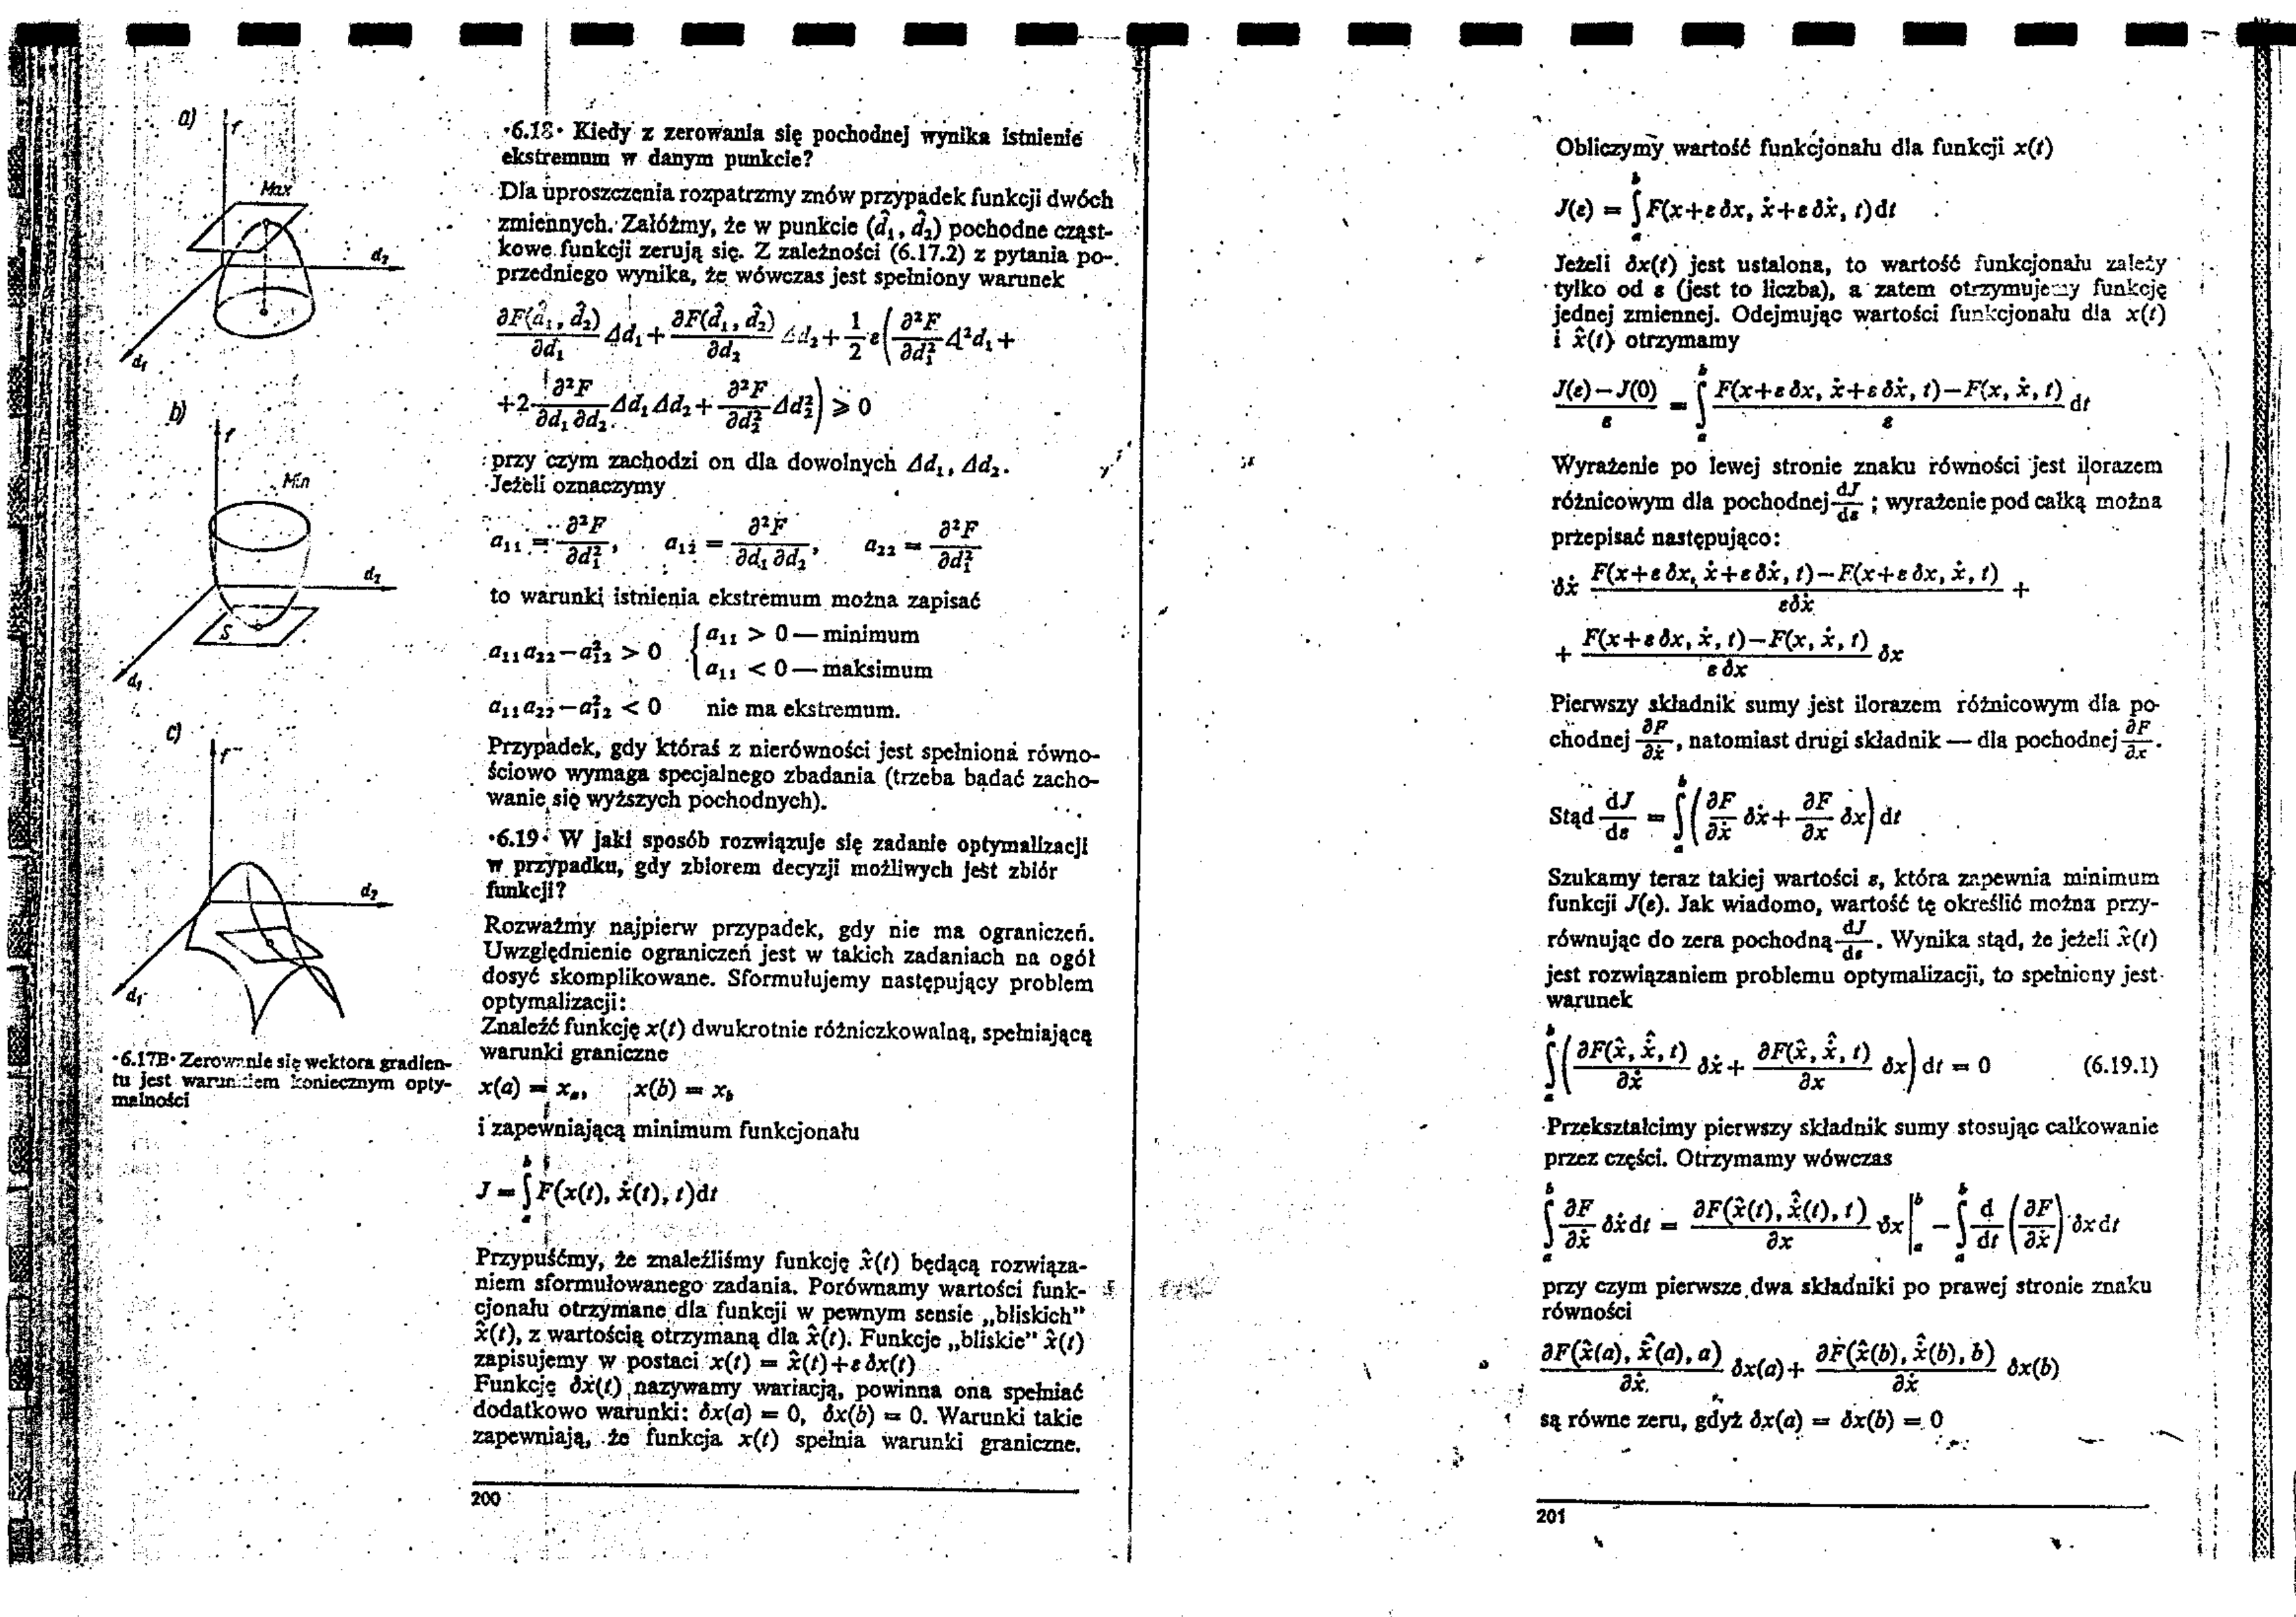 a)
f
Max
d₂
d₁
b)
f
Min
d₂
S
d₁
c)
f
d₂
d₁
•6.17B• Zerowanie się wektora gradien-
tu jest warunkiem koniecznym opty-
malności
•6.18• Kiedy z zerowania się pochodnej wynika istnienie
ekstremum w danym punkcie?
Dla uproszczenia rozpatrzmy znów przypadek funkcji dwóch
zmiennych. Załóżmy, że w punkcie (d̂₁, d̂₂) pochodne cząst-
kowe funkcji zerują się. Z zależności (6.17.2) z pytania po-
przedniego wynika, że wówczas jest spełniony warunek
∂F(d̂₁, d̂₂)/∂d₁ Δd₁ + ∂F(d̂₁, d̂₂)/∂d₂ Δd₂ + 1/2 ε(∂²F/∂d₁² Δ²d₁ +
+2 ∂²F/∂d₁ ∂d₂ Δd₁ Δd₂ + ∂²F/∂d₂² Δd₂²) ⩾ 0
przy czym zachodzi on dla dowolnych Δd₁, Δd₂.
Jeżeli oznaczymy
a₁₁ = ∂²F/∂d₁², a₁₂ = ∂²F/∂d₁ ∂d₂, a₂₂ = ∂²F/∂d₂²
to warunki istnienia ekstremum można zapisać
a₁₁a₂₂ − a₁₂² > 0 { a₁₁ > 0 — minimum
a₁₁ < 0 — maksimum
a₁₁a₂₂ − a₁₂² < 0 nie ma ekstremum.
Przypadek, gdy któraś z nierówności jest spełniona równo-
ściowo wymaga specjalnego zbadania (trzeba badać zacho-
wanie się wyższych pochodnych).
•6.19• W jaki sposób rozwiązuje się zadanie optymalizacji
w przypadku, gdy zbiorem decyzji możliwych jest zbiór
funkcji?
Rozważmy najpierw przypadek, gdy nie ma ograniczeń.
Uwzględnienie ograniczeń jest w takich zadaniach na ogół
dosyć skomplikowane. Sformułujemy następujący problem
optymalizacji:
Znaleźć funkcję x(t) dwukrotnie różniczkowalną, spełniającą
warunki graniczne
x(a) = xₐ, x(b) = x_b
i zapewniającą minimum funkcjonału
J = ∫ₐᵇ F(x(t), ẋ(t), t)dt
Przypuśćmy, że znaleźliśmy funkcję x̂(t) będącą rozwiąza-
niem sformułowanego zadania. Porównamy wartości funk-
cjonału otrzymane dla funkcji w pewnym sensie „bliskich”
x̂(t), z wartością otrzymaną dla x̂(t). Funkcje „bliskie” x̂(t)
zapisujemy w postaci x(t) = x̂(t)+ε δx(t)
Funkcję δx(t) nazywamy wariacją, powinna ona spełniać
dodatkowo warunki: δx(a) = 0, δx(b) = 0. Warunki takie
zapewniają, że funkcja x(t) spełnia warunki graniczne.
200
Obliczymy wartość funkcjonału dla funkcji x(t)
J(ε) = ∫ₐᵇ F(x+ε δx, ẋ+ε δẋ, t)dt
Jeżeli δx(t) jest ustalona, to wartość funkcjonału zależy
tylko od ε (jest to liczba), a zatem otrzymujemy funkcję
jednej zmiennej. Odejmując wartości funkcjonału dla x(t)
i x̂(t) otrzymamy
(J(ε)−J(0))/ε = ∫ₐᵇ (F(x+ε δx, ẋ+ε δẋ, t)−F(x, ẋ, t))/ε dt
Wyrażenie po lewej stronie znaku równości jest ilorazem
różnicowym dla pochodnej dJ/dε ; wyrażenie pod całką można
przepisać następująco:
δẋ (F(x+ε δx, ẋ+ε δẋ, t)−F(x+ε δx, ẋ, t))/εδẋ +
+ (F(x+ε δx, ẋ, t)−F(x, ẋ, t))/ε δx δx
Pierwszy składnik sumy jest ilorazem różnicowym dla po-
chodnej ∂F/∂ẋ, natomiast drugi składnik — dla pochodnej ∂F/∂x.
Stąd dJ/dε = ∫ₐᵇ (∂F/∂ẋ δẋ + ∂F/∂x δx) dt
Szukamy teraz takiej wartości ε, która zapewnia minimum
funkcji J(ε). Jak wiadomo, wartość tę określić można przy-
równując do zera pochodną dJ/dε. Wynika stąd, że jeżeli x̂(t)
jest rozwiązaniem problemu optymalizacji, to spełniony jest
warunek
∫ₐᵇ (∂F(x̂, ẋ̂, t)/∂ẋ δẋ + ∂F(x̂, ẋ̂, t)/∂x δx) dt = 0 (6.19.1)
Przekształcimy pierwszy składnik sumy stosując całkowanie
przez części. Otrzymamy wówczas
∫ₐᵇ ∂F/∂ẋ δẋ dt = ∂F(x̂(t), ẋ̂(t), t)/∂x δx |ₐᵇ − ∫ₐᵇ d/dt (∂F/∂ẋ) δx dt
przy czym pierwsze dwa składniki po prawej stronie znaku
równości
∂F(x̂(a), ẋ̂(a), a)/∂ẋ δx(a) + ∂F(x̂(b), ẋ̂(b), b)/∂ẋ δx(b)
są równe zeru, gdyż δx(a) = δx(b) = 0
201